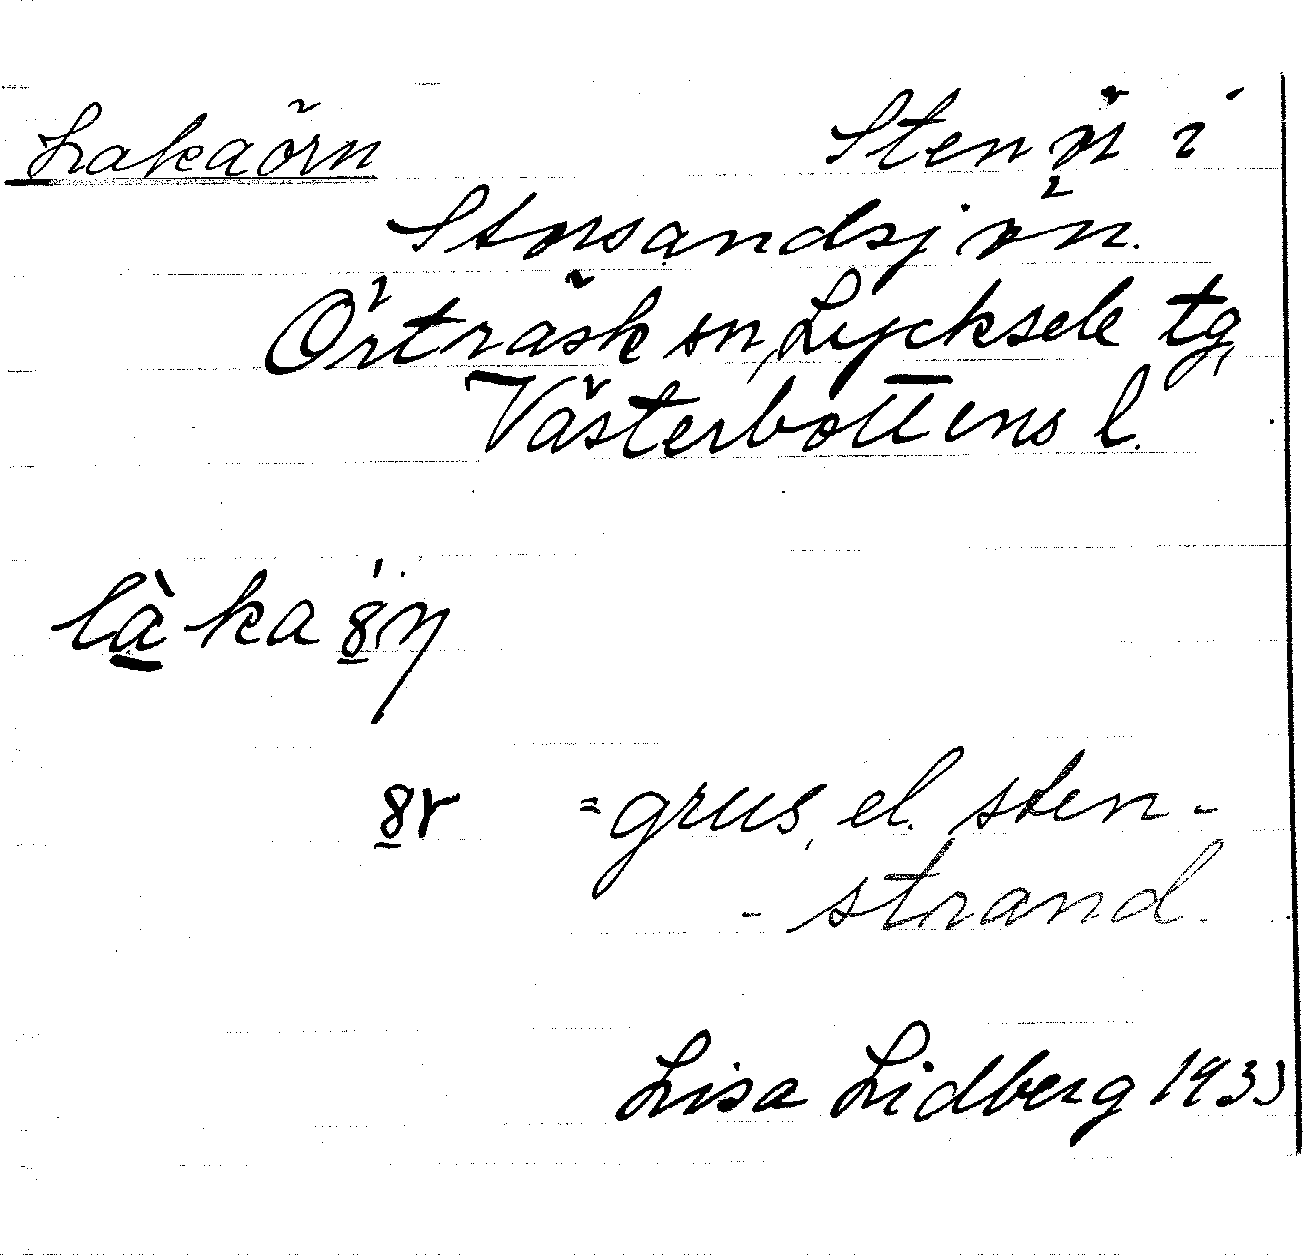 Lakaörn Stenör i
Storsandsjön.
Örträsk sn, Lycksele tg,
Västerbottens l.
là̱ka 8̱́ṇ
8̱r = grus, el. sten-
- strand.
Lisa Lidberg 1933